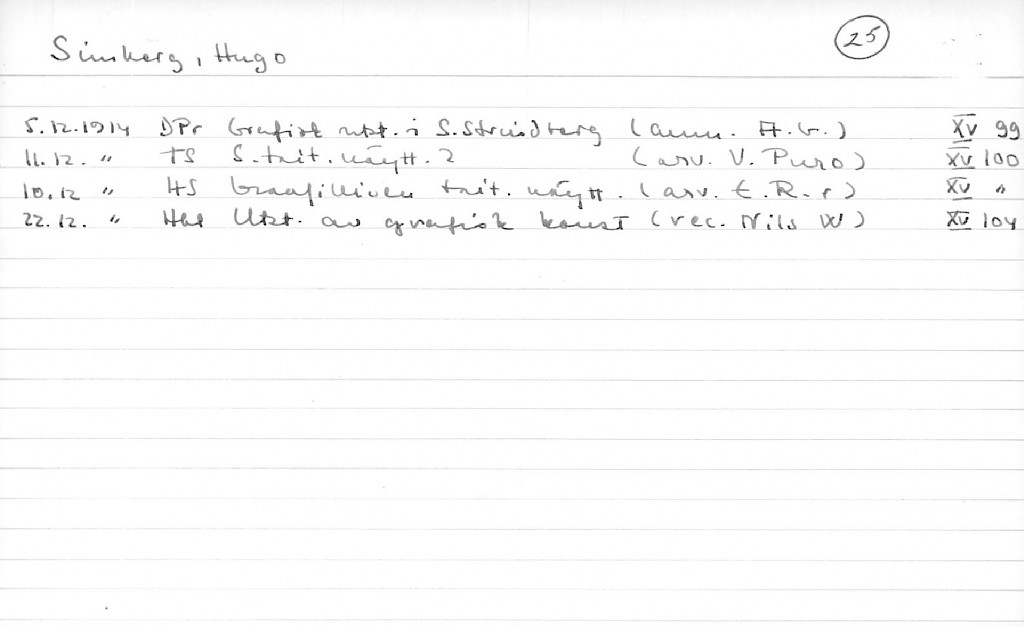 Simberg, Hugo
25
5.12.1914 DPr Grafisk utst. i S. Strindberg (anm. A.G.) XV 99
11.12. " TS S. tait. näytt. 2 (arv. V. Puro) XV 100
10.12 " HS Graafillisen tait. näytt. (arv. E.R-r) XV "
22.12. " Hbl Utst. av grafisk konst (rec. Nils W) XV 104